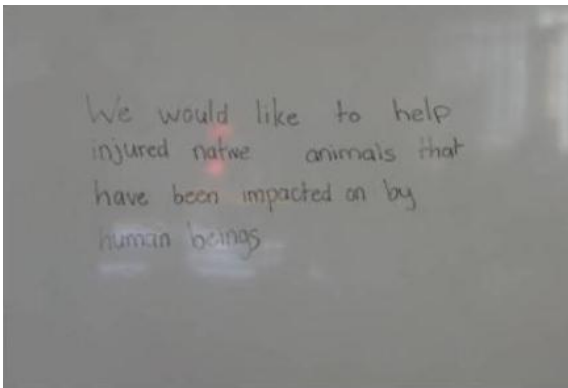 We would like to help
injured native animals that
have been impacted on by
human beings